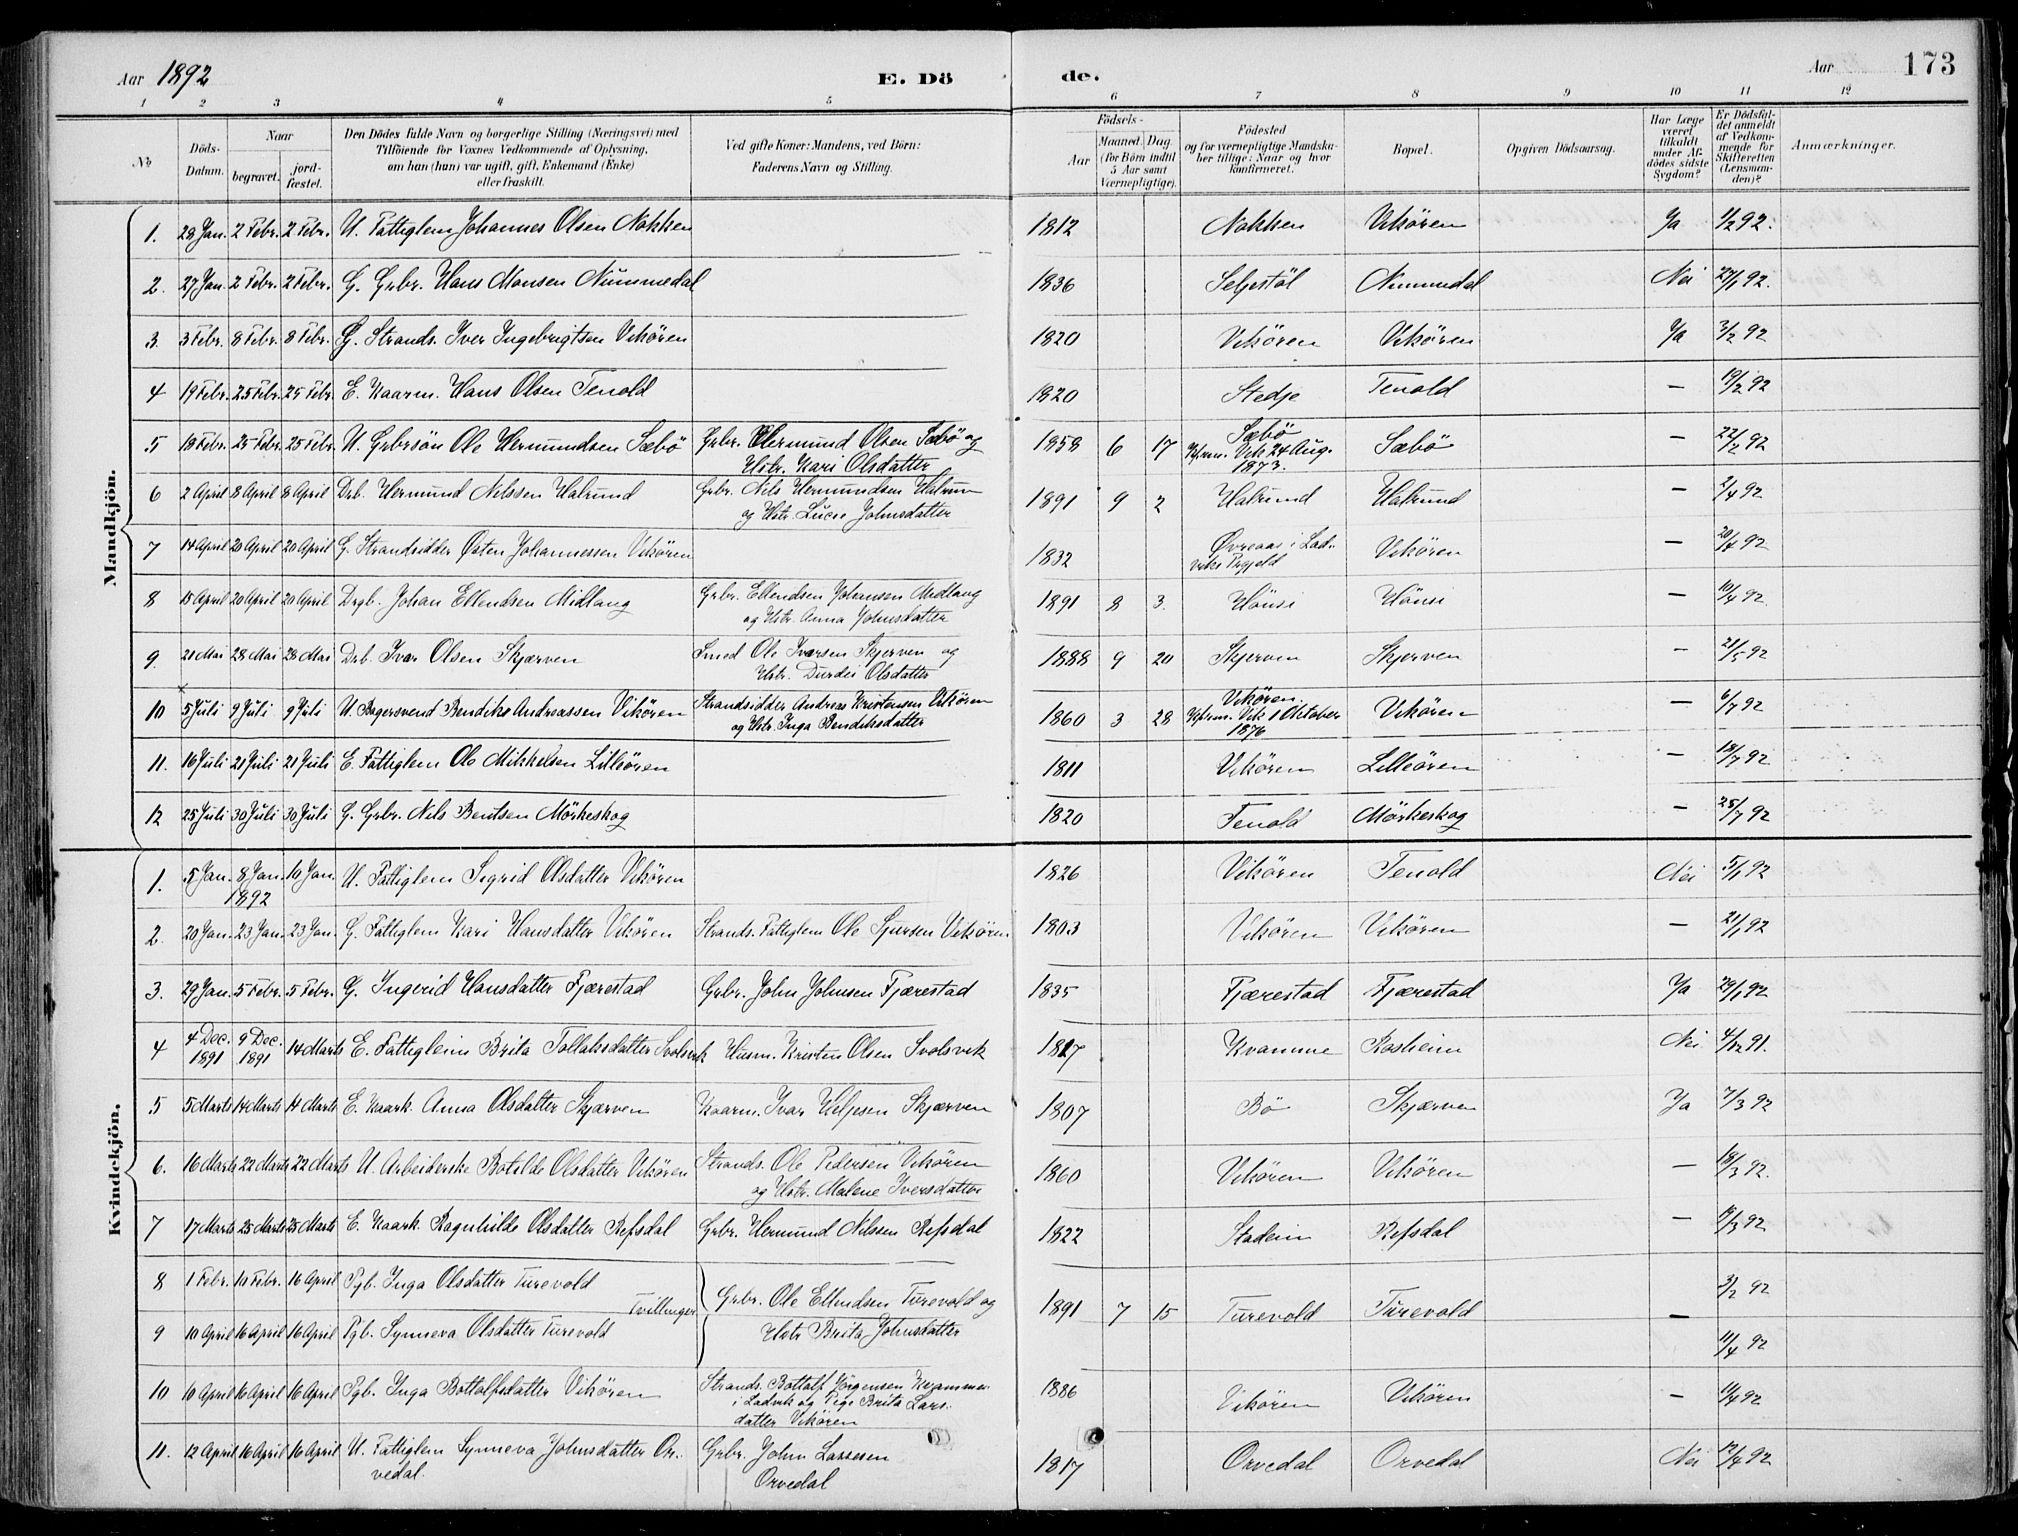 Aar 1892 E. Dö de. Aar 173
1 2 3 4 5 6 7 8 9 10 11 12
No. Döds-Datum. Naar begravet. jordfæstet. Den Dödes fulde Navn og borgerlige Stilling (Næringsvei) med Tilföiende for Voxnes Vedkommende af Oplysning, om han (hun) var ugift, gift, Enkemand (Enke) eller fraskilt. Ved gifte Koner: Mandens, ved Börn: Faderens Navn og Stilling. Födsels- Aar Maaned. Dag. (for Börn indtil 5 Aar samt Værnepligtige). Födested og for værnepligtige Mandskaber tillige: Naar og hvor konfirmeret. Bopæl. Opgiven Dödsaarsag. Har Læge været tilkaldt under Afdödes sidste Sygdom? Er Dödsfaldet anmeldt af Vedkommende for Skifteretten (Lensmanden)? Anmærkninger.
Mandkjön.
1. 28 Jan. 2 Febr. 2 Febr. U. Fattiglem Johannes Olsen Nokken 1812 Nokken Vikören Ja 1/2 92.
2. 27 Jan. 2 Febr. 2 Febr. G. Grbr. Hans Monsen Nummedal 1836 Seljestöl Nummedal Nei 27/1 92.
3. 3 Febr. 8 Febr. 8 Febr. G. Strands. Iver Ingebrigtsen Vikören 1820 Vikören Vikören Ja 3/2 92
4 19 Febr. 25 Febr. 25 Febr. E. Kaarm. Hans Olsen Tenold 1820 Stedje Tenold — 19/2 92
5 18 Febr. 25 Febr. 25 Febr. U. Grbrsön Ole Hermundsen Sæbö Grbr. Hermund Olsen Sæbö og 1858 6 17 Sæbö Sæbö — 22/2 92
Hstr. Kari Olsdatter Kfrm. Vik 24 Aug. 1873.
6 2 April 8 April 8 April Drb. Hermund Nilssen Halrund Grbr. Nils Hermundsen Halrun 1891 9 2 Halrund Halrund — 2/4 92
og Hstr. Lucie Johnsdatter
7 14 April 20 April 20 April G. Strandsidder Østen Johannessen Vikören 1832 Øvreaas i Lad- Vikören — 20/4 92
viks Prgjeld
8 15 April 20 April 20 April Drgb. Johan Ellendsen Midlang Grbr. Ellendsen Johansen Midlang 1891 8 3. Hönsi Hönsi — 19/4 92.
og Hstr. Anna Johnsdatter
9. 21 Mai 28 Mai 28 Mai Drb. Ivar Olsen Skjærven Smed Ole Ivarsen Skjerven og 1888 9 20 Skjerven Skjerven — 21/5 92
Hstr. Durdei Olsdatter
10 5 Juli 9 Juli 9 Juli U. Bagersvend Bendiks Andreassen Vikören Strandsidder Andreas Kristensen Vikören 1860 3 28 Vikören Vikören — 6/7 92
og Hstr. Inga Bendiksdatter Kfrm. Vik 1 Oktober 1876
11. 16 Juli 21 Juli 21 Juli E. Fattiglem Ole Mikkelsen Lilleören 1811 Vikören Lilleören — 18/7 92
12 25 Juli 30 Juli 30 Juli G. Grbr. Nils Bentsen Mörkeskog 1820 Tenold Mörkeskog — 25/7 92
Kvindekjön.
1. 5 Jan. 8 Jan. 1892 10 Jan. U. Fattiglem Sigrid Olsdatter Vikören 1826 Vikören Tenold Nei 5/1 92
2. 20 Jan. 23 Jan. 23 Jan. G. Fattiglem Kari Hansdatter Vikören Strands. Fattiglem Ole Sjursen Vikören 1803 Vikören Vikören — 21/1 92
3. 29 Jan. 5 Febr. 5 Febr. G. Ingerid Hansdatter Fjærestad Grbr. John Johnsen Fjærestad 1835 Fjærestad Fjærestad Ja 29/1 92
4 4 Dec. 1891 9 Dec. 1891 14 Marts E. Fattiglem Brita Tollaksdatter Svolsvik Husm. Kristen Olsen Svolsvik 1817 Kvamme Bosheim Nei 4/12 91.
5 5 Marts 14 Marts 14 Marts E. Kaark. Anna Olsdatter Skjærven Kaarm. Ivar Heljesen Skjærven 1807 Bö Skjærven Ja 7/3 92
6. 16 Marts 22 Marts 22 Marts U. Arbeiderske Botilde Olsdatter Vikören Strands. Ole Pedersen Vikören 1860 Vikören Vikören — 18/3 92.
og Hstr. Malene Iversdatter
7 17 Marts 25 Marts 25 Marts E. Kaark. Ragnhilde Olsdatter Refsdal Grbr. Hermund Nilssen Refsdal 1822 Stadein Refsdal —
8 1 Febr. 10 Febr. 16 April Pgb. Inga Olsdatter Turevold 3/2 92
Tvillinger Grbr. Ole Ellendsen Turevold og 1891 7 15 Turevold Turevold —
9 10 April 16 April 16 April Pgb. Synneva Olsdatter Turevold Hstr Brita Johnsdatter 11/4 92
10 10 April 16 April 16 April Pgb. Inga Bottolfsdatter Vikören Strands. Bottolf Jörgensen Kvamme 1886 Vikören Vikören — 11/4 92
i Ladvik og Pige Brita Lars-
datter Vikören
11. 12 April 16 April 16 April U. Fattiglem Synneva Johnsdatter Or- Grbr. John Lassesen 1817 Orvedal Orvedal Nei 12/4 92
vedal. Orvedal